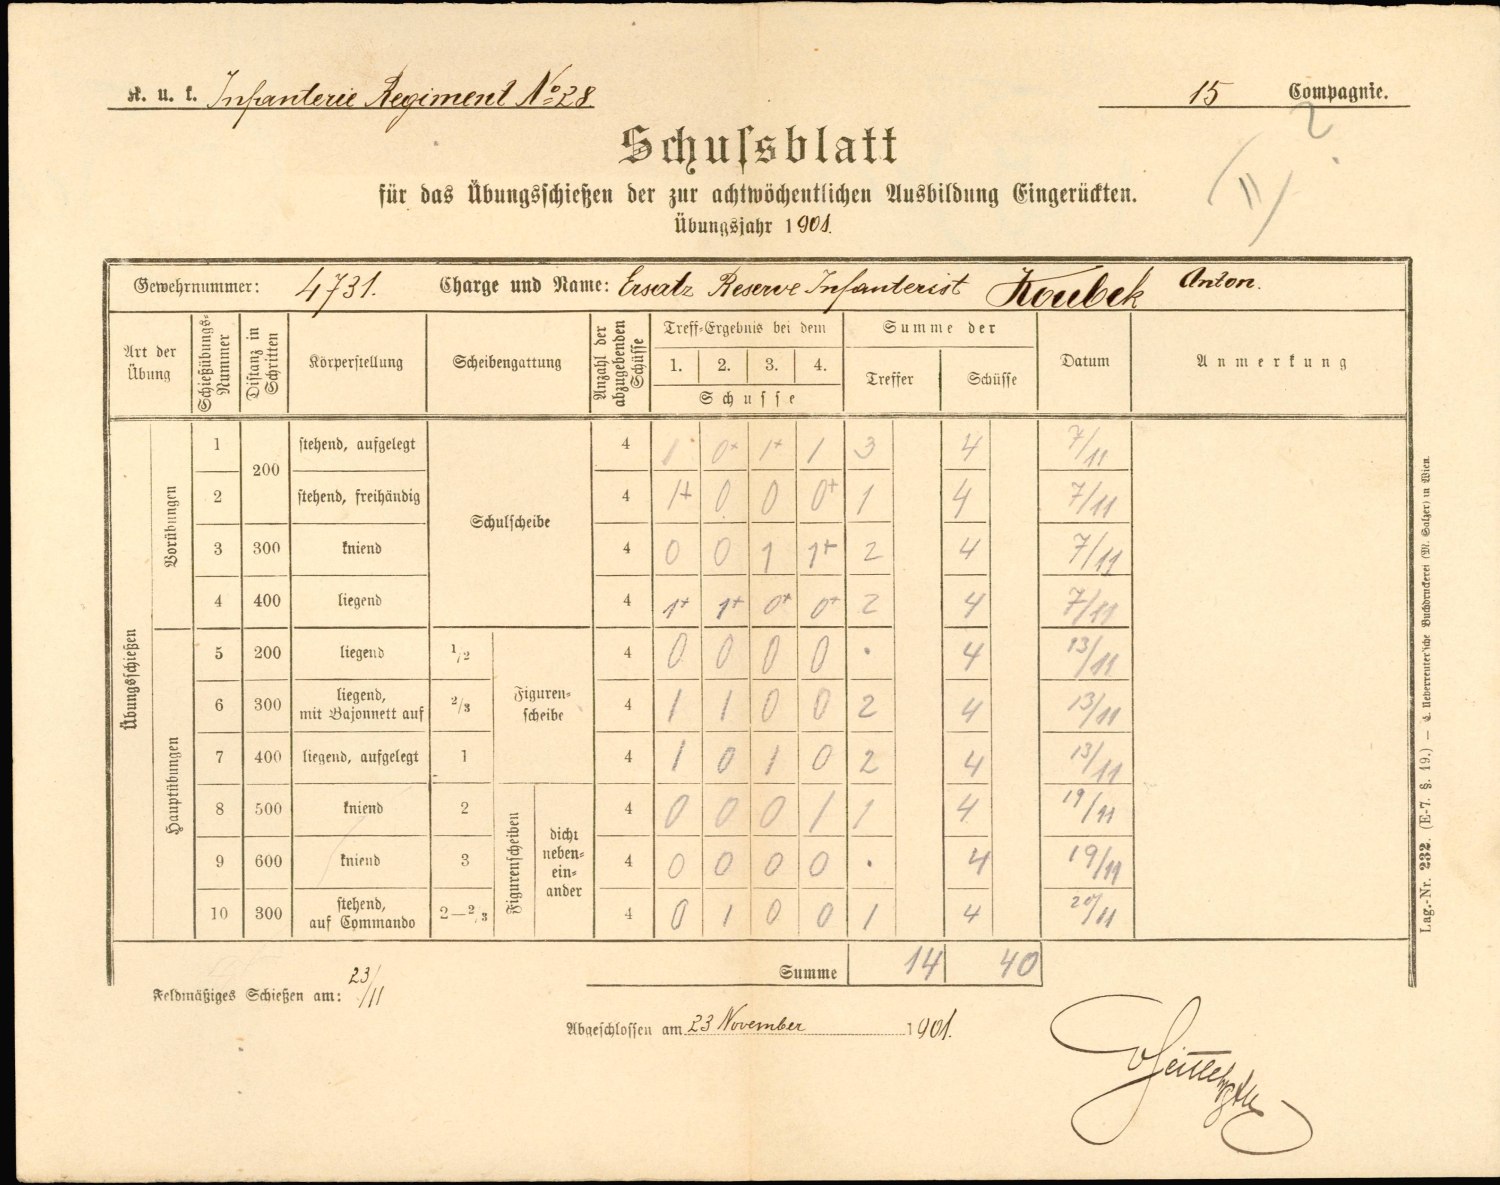 K. u. k. Infanterie Regiment No 28
15 Compagnie.
2
II
Schussblatt
für das Übungsschießen der zur achtwöchentlichen Ausbildung Eingerückten.
Übungsjahr 1901.
Gewehrnummer: 4731. Charge und Name: Ersatz Reserve Infanterist Koubek Anton.
Art der Übung | Schießübungs-Nummer | Distanz in Schritten | Körperstellung | Scheibengattung | Anzahl der abzugebenden Schüsse | Treff-Ergebnis bei dem 1. 2. 3. 4. Schusse | Summe der Treffer Schüsse | Datum | Anmerkung
Übungsschießen
Vorübungen
1 200 stehend, aufgelegt Schulscheibe 4 1 0+ 1+ 1 3 4 7/11
2 stehend, freihändig 4 1+ 0 0 0+ 1 4 7/11
3 300 kniend 4 0 0 1 1+ 2 4 7/11
4 400 liegend 4 1+ 1+ 0+ 0+ 2 4 7/11
Hauptübungen
5 200 liegend 1/2 Figuren-scheibe 4 0 0 0 0 · 4 13/11
6 300 liegend, mit Bajonnett auf 2/3 4 1 1 0 0 2 4 13/11
7 400 liegend, aufgelegt 1 4 1 0 1 0 2 4 13/11
8 500 kniend 2 Figurenscheiben dicht neben-ein-ander 4 0 0 0 1 1 4 19/11
9 600 kniend 3 4 0 0 0 0 · 4 19/11
10 300 stehend, auf Commando 2—2/3 4 0 1 0 0 1 4 20/11
Summe 14 40
Feldmäßiges Schießen am: 23/11
Abgeschlossen am 23 November 1901.
Lag.-Nr. 232. (E-7. §. 19.) — k. Ueberreuter'sche Buchdruckerei (M. Salzer) in Wien.